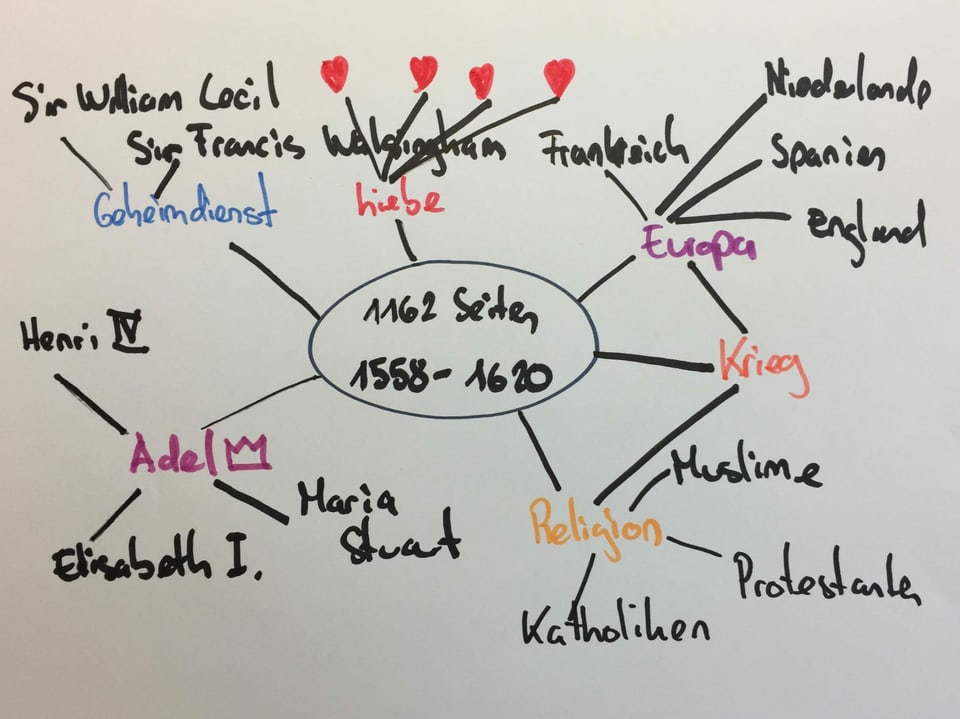 Sir William Cecil
Sir Francis Walsingham
Geheimdienst
Liebe
Frankreich
Niederlande
Spanien
England
Europa
1162 Seiten
1558 - 1620
Krieg
Henri IV
Adel
Maria
Stuart
Elisabeth I.
Religion
Muslime
Protestanten
Katholiken